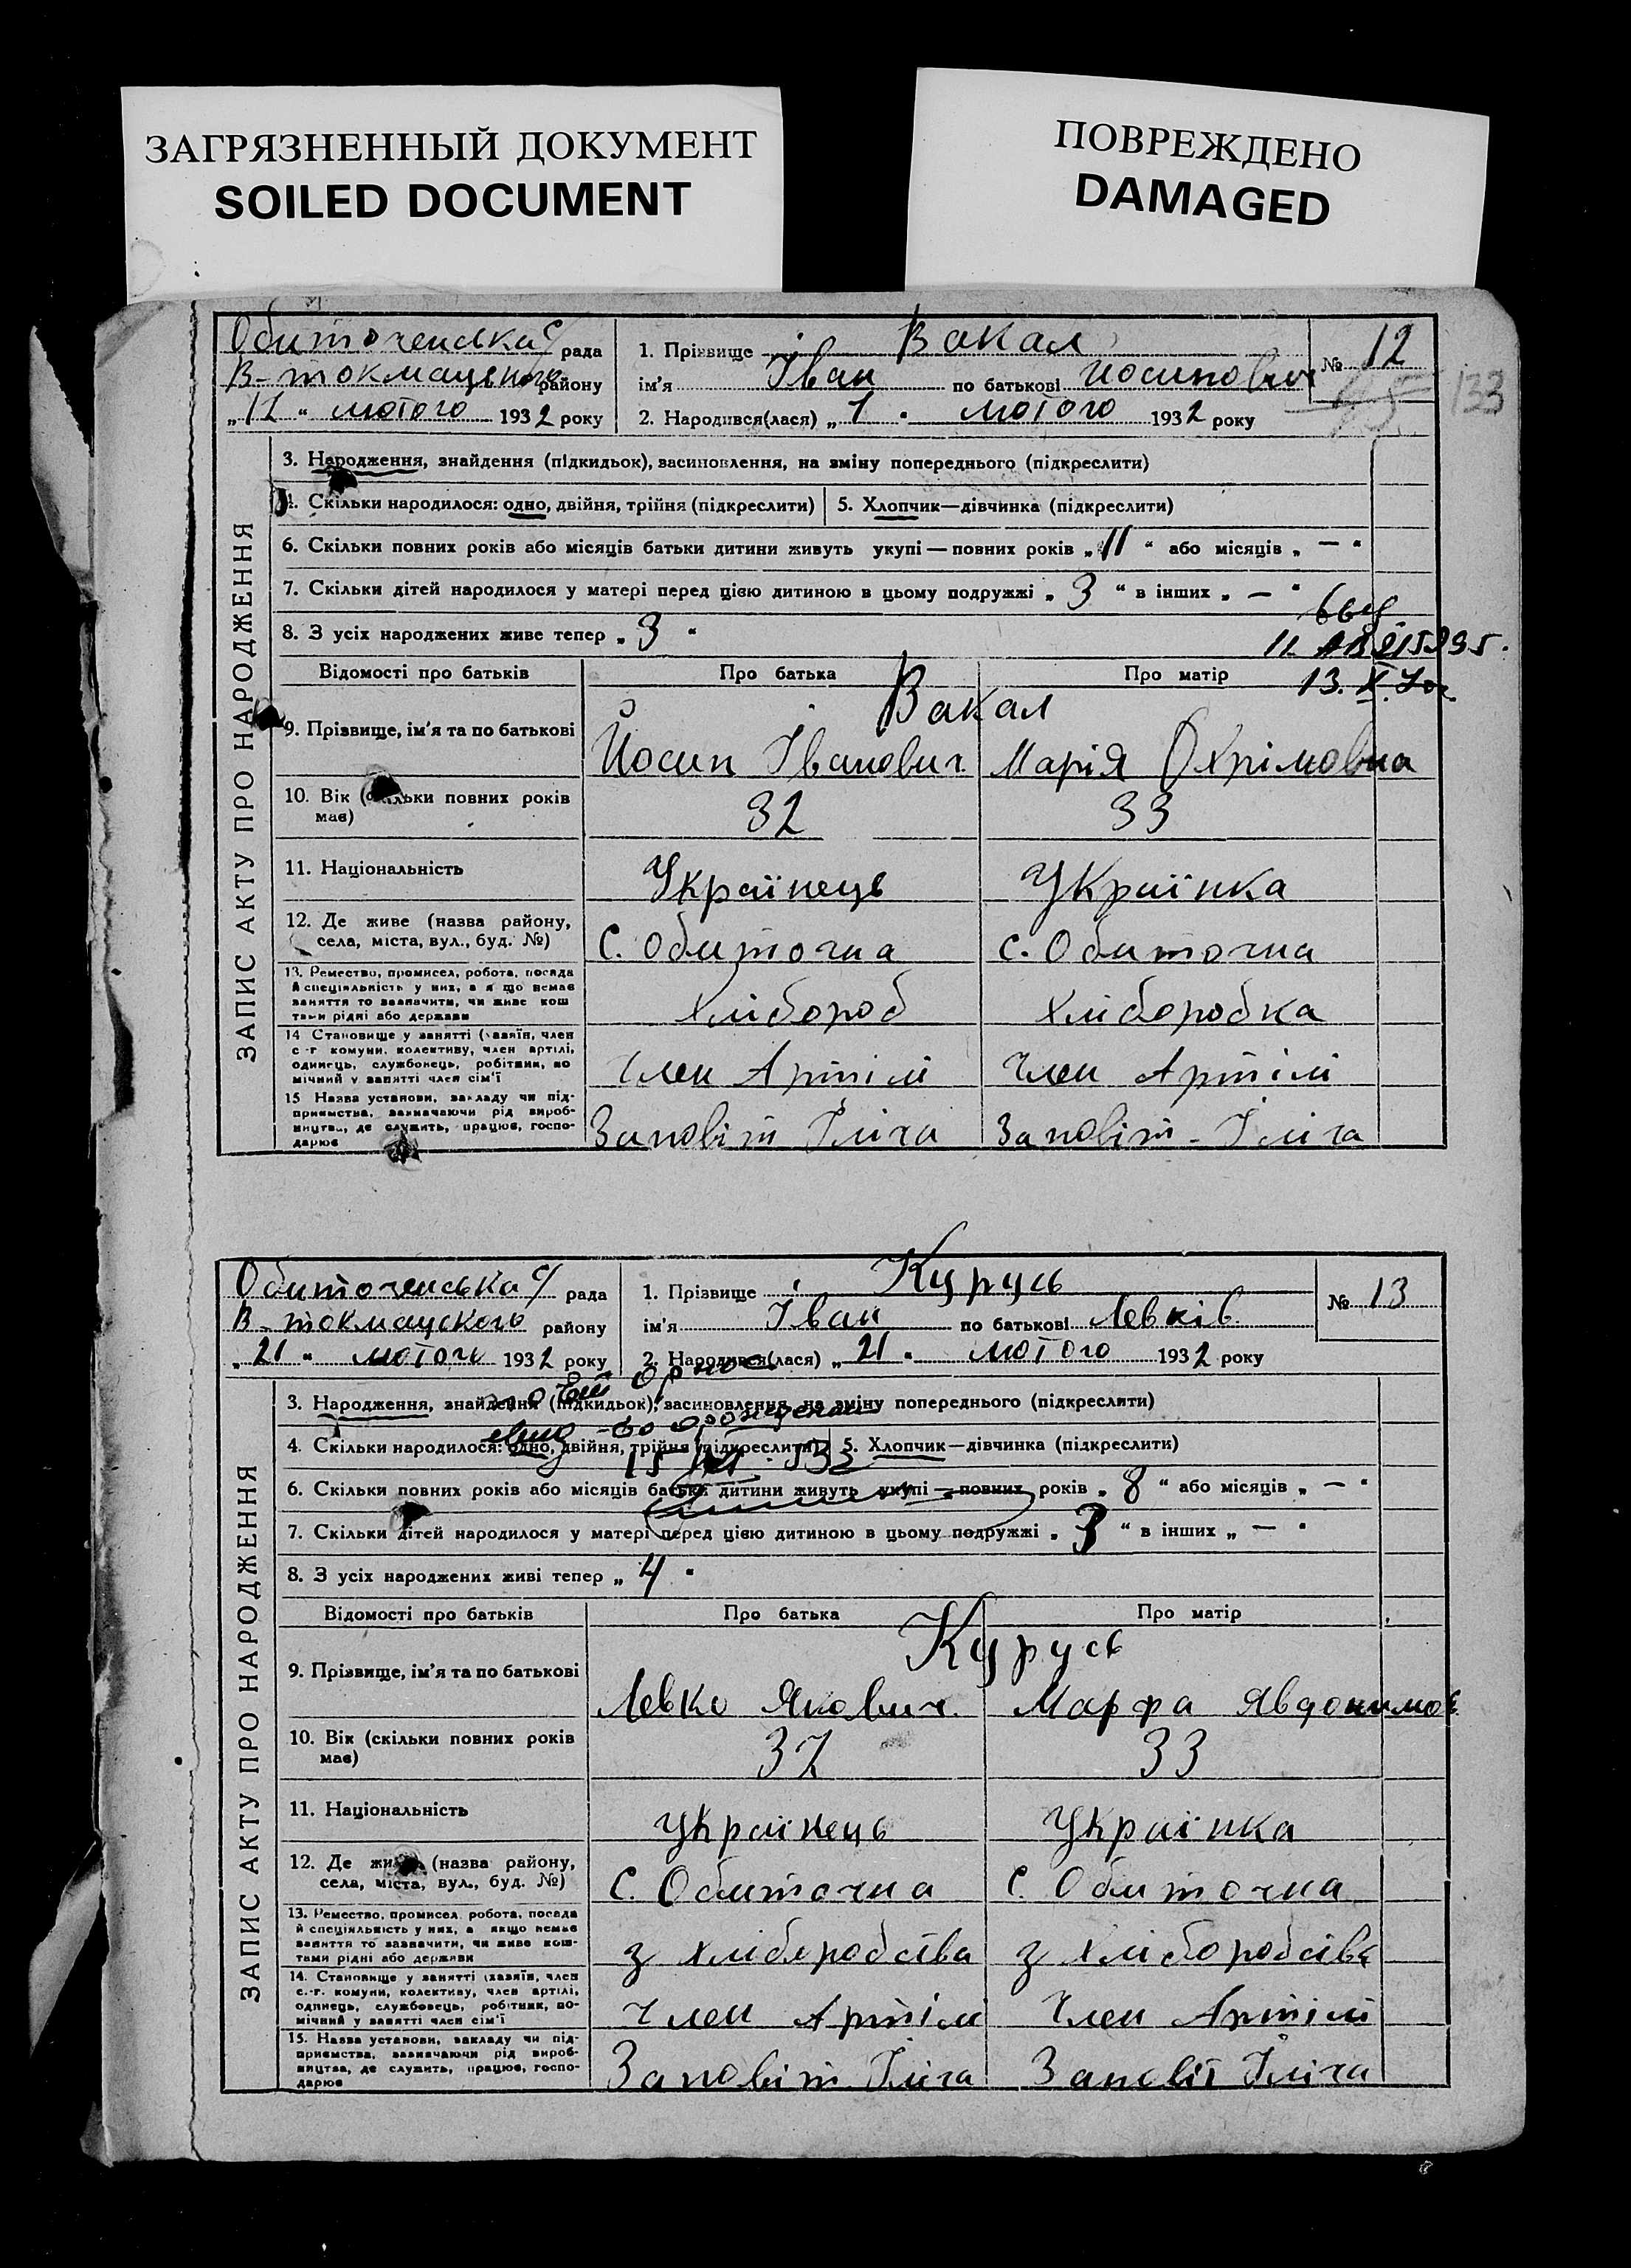 ЗАГРЯЗНЕННЫЙ ДОКУМЕНТ
SOILED DOCUMENT
ПОВРЕЖДЕНО
DAMAGED
Обиточенська с/ рада
В-токмацького району
„12“ лютого 1932 року
1. Прізвище Вакал
ім'я Іван по батькові Йосипович
2. Народився(лася) „7“ лютого 1932 року
№ 12
133
3. Народження, знайдення (підкидьок), васиновлення, на зміну попереднього (підкреслити)
4. Скільки народилося: одно, двійня, трійня (підкреслити)
5. Хлопчик—дівчинка (підкреслити)
6. Скільки повних років або місяців батьки дитини живуть укупі — повних років „11“ або місяців „—“
7. Скільки дітей народилося у матері перед цією дитиною в цьому подружжі „3“ в інших „—“
8. З усіх народжених живе тепер „3“
ЗАПИС АКТУ ПРО НАРОДЖЕННЯ
Відомості про батьків
Про батька
Про матір
13. X. 70г.
9. Прізвище, ім'я та по батькові
Вакал
Йосип Іванович
Марія Охрімовна
10. Вік (скільки повних років має)
32
33
11. Національність
Українець
Українка
12. Де живе (назва району, села, міста, вул., буд. №)
С. Обиточна
с. Обиточна
13. Ремество, промисел, робота, посада й спеціяльність у них, а якщо немає заняття то зазначити, чи живе коштами рідні або держави
Хлібороб
Хліборобка
14 Становище у занятті (хазяїн, член с.-г. комуни, колективу, член артілі, одинець, службовець, робітник, помічний у занятті член сім'ї
Член Артілі
Член Артілі
15 Назва установи, закладу чи підприємства, зазначаючи рід виробництва, де служить, працює, господарює
Заповіт Ілліча
Заповіт-Ілліча
Обиточенська с/ рада
В-токмацького району
„21“ лютого 1932 року
1. Прізвище Курусь
ім'я Іван по батькові Левків
2. Народився(лася) „21“ лютого 1932 року
№ 13
3. Народження, знайдення (підкидьок), васиновлення, на зміну попереднього (підкреслити)
4. Скільки народилося: одно, двійня, трійня (підкреслити)
5. Хлопчик—дівчинка (підкреслити)
6. Скільки повних років або місяців батьки дитини живуть укупі — повних років „8“ або місяців „—“
7. Скільки дітей народилося у матері перед цією дитиною в цьому подружжі „3“ в інших „—“
8. З усіх народжених живі тепер „4“
ЗАПИС АКТУ ПРО НАРОДЖЕННЯ
Відомості про батьків
Про батька
Про матір
9. Прізвище, ім'я та по батькові
Курусь
Левко Якович
Марфа Явдокимов
10. Вік (скільки повних років має)
37
33
11. Національність
Українець
Українка
12. Де живе (назва району, села, міста, вул., буд. №)
С. Обиточна
С. Обиточна
13. Ремество, промисел, робота, посада й спеціяльність у них, а якщо немає заняття то зазначити, чи живе коштами рідні або держави
з хліборобсіва
з хліборобсіва
14. Становище у занятті (хазяїн, член с.-г. комуни, колективу, член артілі, одинець, службовець, робітник, помічний у занятті член сім'ї
Член Артілі
Член Артілі
15. Назва установи, закладу чи підприємства, зазначаючи рід виробництва, де служить, працює, господарює
Заповіт Ілліча
Заповіт Ілліча